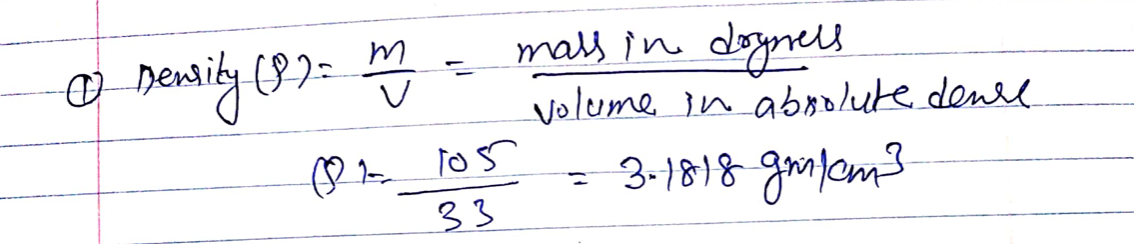 ① Density (ρ) = m/V = mass in dryness / volume in absolute dense
(ρ) = 105/33 = 3.1818 gm/cm³